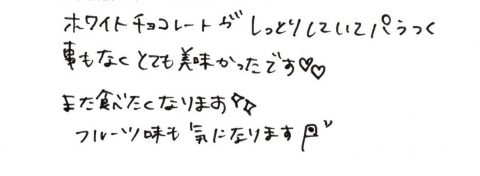 ホワイトチョコレートがしっとりしていてパラつく
事もなくとても美味かったです♡♡
また食べたくなります✧✧
フルーツ味も気になります